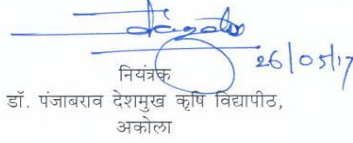 26/05/17
नियंत्रक
डॉ. पंजाबराव देशमुख कृषि विद्यापीठ,
अकोला